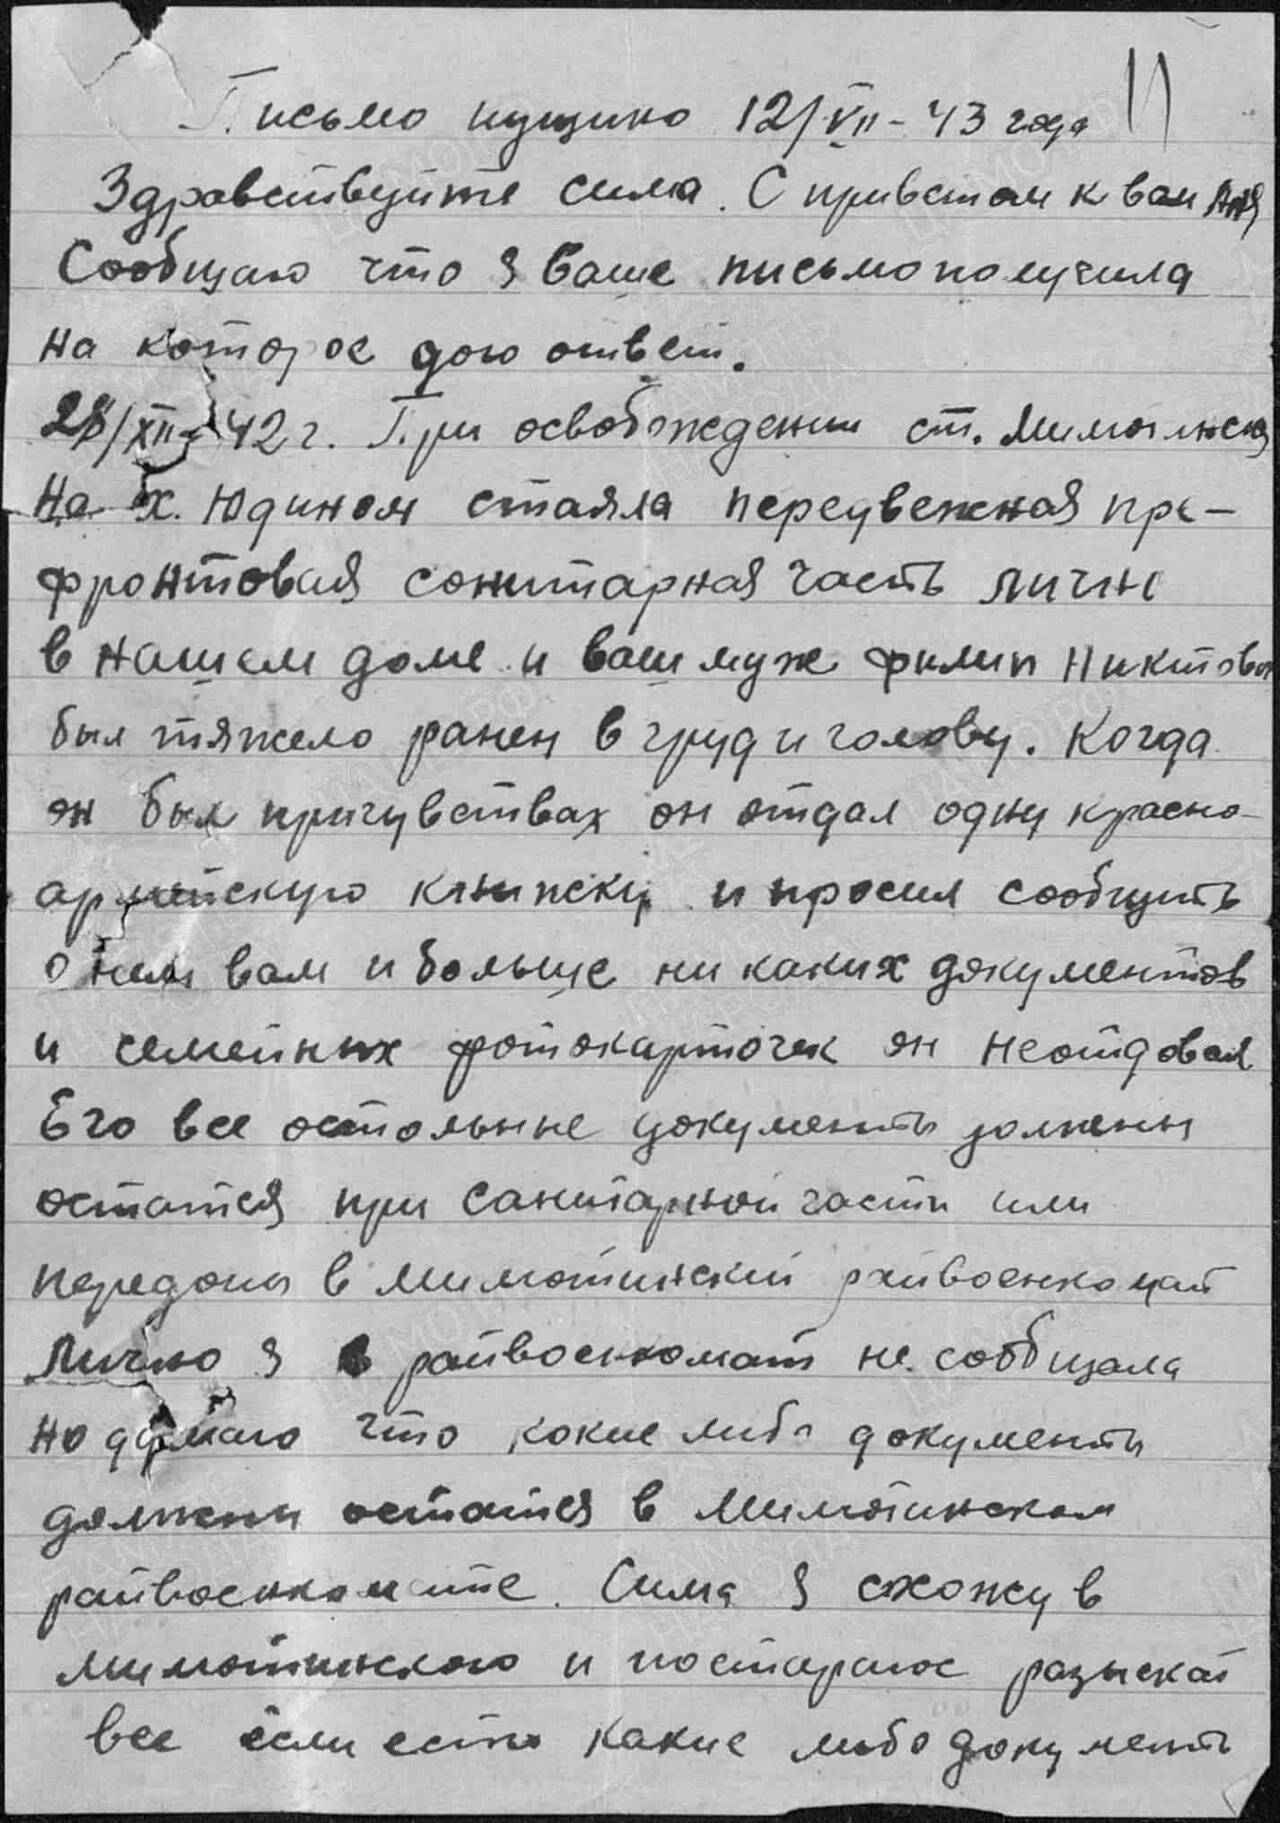 Письмо пущино 12/VII-43 года 11
Здравствуйте сима. С приветом к вам Аня
Сообщаю что я ваше письмо получила
на которое дою ответ.
28/XII-42 г. При освобождении ст.
На х. Юдином стаяла передвежная пре-
фронтовая сонитарная часть лично
в нашем доме и ваш муж филип
был тяжело ранен в груд и голову. Когда
он был причувствах он отдал одну красно-
армейскую книжку и просил сообщить
о нем вам и больше ни каких документов
и семейных фотокарточек он неотдовал
Его все остольные документы должены
остатся при санитарной части или
передоны в Милютинский райвоенкомат
Лично я в райвоенкомат не сообщала
но думаю что кокие либо документы
должены остатся в Милютинском
райвоенкомате. Сима я схожу в
Милютинскою и постараюс разыскат
все если есть какие либо документы